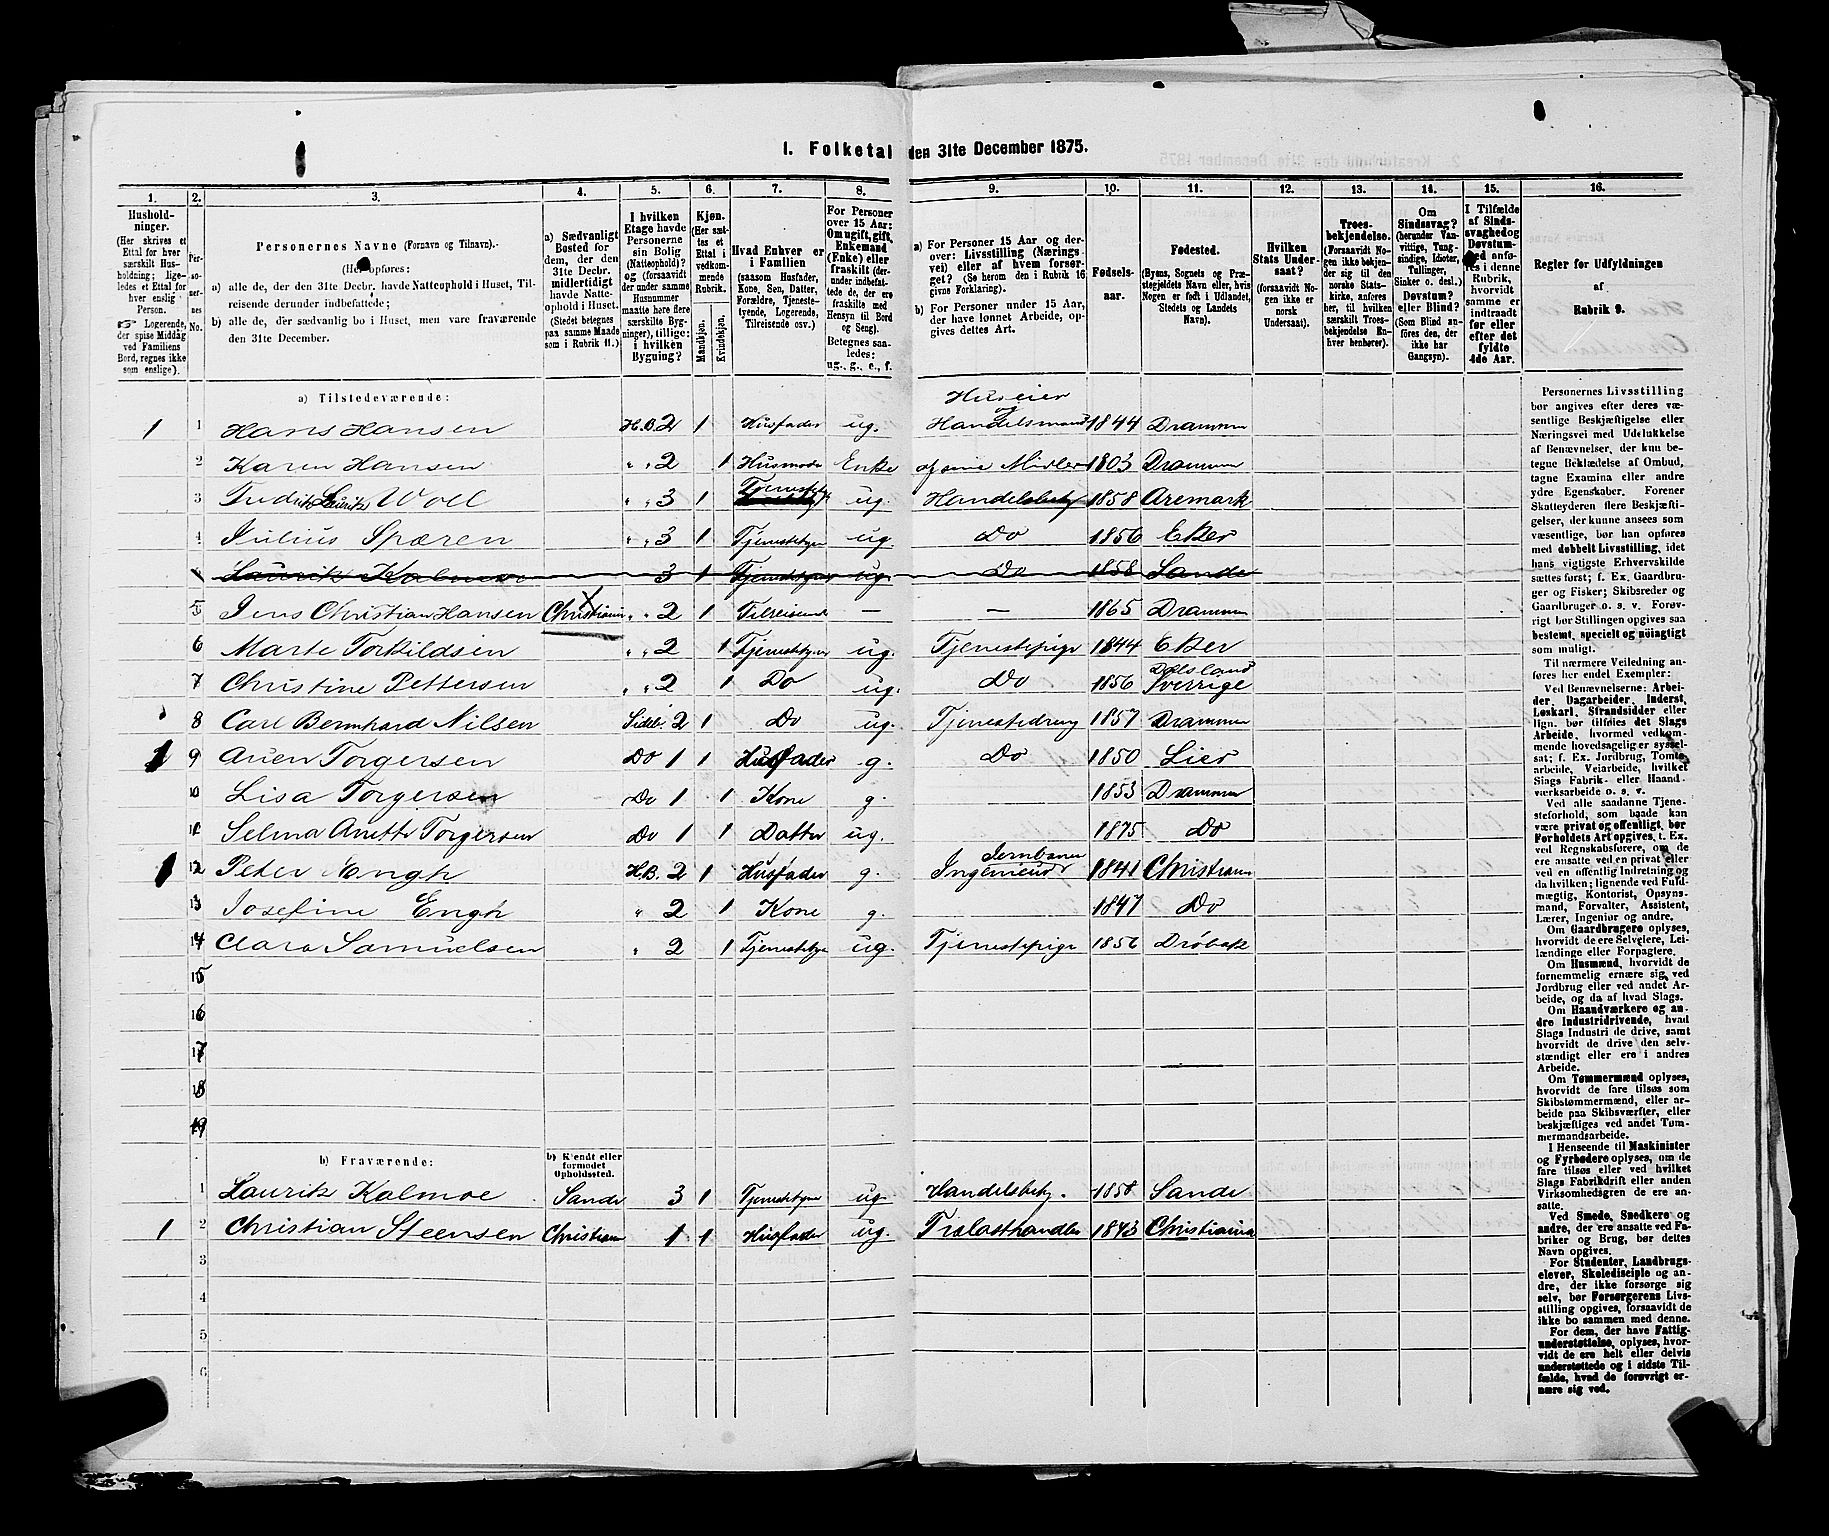 1. Folketal den 31te December 1875.
1. 2. 3. 4. 5. 6. 7. 8. 9. 10. 11. 12. 13. 14. 15. 16.
Hushold-
ninger.
(Her skrives et
Ettal for hver
særskilt Hus-
holdning; lige-
ledes et Ettal for
hver enslig
Person.
Logerende,
der spise Middag
ved Familiens
Bord, regnes ikke
som enslige).
Per-
so-
ner-
nes
No.
Personernes Navne (Fornavn og Tilnavn).
(Her opføres:
a) alle de, der den 31te Decbr. havde Natteophold i Huset, Til-
reisende derunder indbefattede;
b) alle de, der sædvanlig bo i Huset, men vare fraværende
den 31te December.
a) Sædvanligt
Bosted for
dem, der den
31te Decbr.
midlertidigt
havde Natte-
ophold i Huset.
(Stedet betegnes
paa samme Maade
som i Rubrik 11.)
I hvilken
Etage havde
Personerne
sin Bolig
(Natteophold)?
og (forsaavidt
der under samme
Husnummer
maatte høre flere
særskilte Byg-
ninger), tillige:
i hvilken
Bygning?
Kjøn.
(Her sæt-
tes et
Ettal i
vedkom-
mende
Rubrik.
Mandkjøn.
Kvindekjøn.
Hvad Enhver er
i Familien
(saasom Husfader,
Kone, Søn, Datter,
Forældre, Tjeneste-
tyende, Logerende,
Tilreisende osv.)
For Personer
over 15 Aar:
Om ugift, gift,
Enkemand
(Enke) eller
fraskilt (der-
under indbefat-
tede de, der
ere fraskilte med
Hensyn til Bord
og Seng).
Betegnes saa-
ledes:
ug., g., e., f.
a) For Personer 15 Aar og der-
over: Livsstilling (Nærings-
vei) eller af hvem forsør-
get? (Se herom den i Rubrik 16
givne Forklaring).
b) For Personer under 15 Aar,
der have lønnet Arbeide, op-
gives dettes Art.
Fødsels-
aar.
Fødested.
(Byens, Sognets og Præ-
stegjeldets Navn eller, hvis
Nogen er født i Udlandet,
Stedets og Landets
Navn).
Hvilken
Stats Under-
saat?
(forsaavidt No-
gen ikke er
norsk
Undersaat).
Troes-
bekjendelse.
(Forsaavidt No-
gen ikke bekjen-
der sig til den
norske Stats-
kirke, anføres
her, til hvilken
særskilt Troes-
bekjendelse En-
hver henhører).
Om
Sindssvag?
(herunder Van-
vittige, Tung-
sindige, Idioter,
Tullinger,
Sinker o. desl.)
Døvstum?
eller Blind?
(Som Blind an-
føres den, der
ikke har
Gangsyn).
I Tilfælde
af Sinds-
svaghed og
Døvstum-
hed anfø-
res i denne
Rubrik,
hvorvidt
samme er
indtraadt
før eller
efter det
fyldte
4de Aar.
Regler for Udfyldningen
af
Rubrik 9.
a) Tilstedeværende:
Huseier
1 1 Hans Hansen H.B. 2 1 Husfader ug. og Handelsmand 1844 Drammen
2 Karen Hansen " " 2 1 Husmoder Enke af egne Midler 1803 Drammen
3 Fredrik Laurits Woll " " 3 1 Tjenestetyende ug. Handelsbetj 1858 Aremark
4 Julius Spæren " " 3 1 Tjenestetyen ug. Do 1856 Eker
Laurik Kalmoe 3 1 Tjenestetyen ug. Do 1858 Sande
5 Jens Christian Hansen Christiania " " 2 1 Tilreisende — — 1865 Drammen
6 Marte Torkildsen " " 2 1 Tjenestetyen ug. Tjenestepige 1844 Eker
7 Christine Pettersen " 2 1 Do ug. Do 1856 Dalsland Sverrige
8 Carl Bernhard Nilsen Sideb. 2 1 Do ug. Tjenestedreng 1857 Drammen
1 9 Auen Torgersen Do 1 1 Husfader g. Do 1850 Lier
10 Lisa Torgersen Do 1 1 Kone g. 1853 Drammen
11 Selma Anette Torgersen Do 1 1 Datter ug. 1875 Do
1 12 Peter Engh H.B. 2 1 Husfader g. Jernbane Ingenieur 1841 Christiania
13 Josefine Engh " 2 1 Kone g. 1847 Do
14 Clara Samuelsen " 2 1 Tjenestetyen ug. Tjenestepige 1856 Drøbak
15
16
17
18
19
b) Fraværende:
b) Kjendt eller
formodet
Opholdssted.
1 Laurik Kalmoe Sande 3 1 Tjenestetyen ug. Handelsbetj. 1858 Sande
1 2 Christian Steensen Christiania 1 1 Husfader ug. Trælasthandler 1843 Christiania
3
4
5
6
Personernes Livsstilling
bør angives efter deres væ-
sentlige Beskjæftigelse eller
Næringsvei med Udelukkelse
af Benævnelser, der kun be-
tegne Beklædelse af Ombud,
tagne Examina eller andre
ydre Egenskaber. Forener
Skatteyderen flere Beskjæfti-
gelser, der kunne ansees som
væsentlige, bør han opføres
med dobbelt Livsstilling, idet
hans vigtigste Erhvervskilde
sættes først; f. Ex. Gaardbru-
ger og Fisker; Skibsreder og
Gaardbruger o. s. v. Forøv-
rigt bør Stillingen opgives saa
bestemt, specielt og nøiagtigt
som muligt.
Til nærmere Veiledning an-
føres her endel Exempler:
Ved Benævnelserne: Arbei-
der, Dagarbeider, Inderst,
Løskarl, Strandsidder eller
lign. bør tilføies det Slags
Arbeide, hvormed vedkom-
mende hovedsagelig er syssel-
sat; f. Ex. Jordbrug, Tomte-
arbeide, Veiarbeide, hvilket
Slags Fabrik- eller Haand-
værksarbeide o. s. v.
Ved alle saadanne Tjene-
steforhold, som baade kan
være privat og offentligt, bør
Forholdets Art opgives, t. Ex.
ved Regnskabsførere, om de
ere ansatte ved en privat eller
ved en offentlig Indretning og
da hvilken; lignende ved Fuld-
mægtig, Kontorist, Opsyns-
mand, Forvalter, Assistent,
Lærer, Ingeniør og andre.
Om Gaardbrugere oplyses,
hvorvidt de ere Selveiere, Lei-
lændinge eller Forpagtere.
Om Husmænd, hvorvidt de
fornemmelig ernære sig ved
Jordbrug eller ved andet Ar-
beide, og da af hvad Slags.
Om Haandværkere og an-
dre Industridrivende, hvad
Slags Industri de drive, samt
hvorvidt de drive den selv-
stændigt eller ere i andres
Arbeide.
Om Tømmermænd oplyses,
hvorvidt de fare tilsøs som
Skibstømmermænd, eller ar-
beide paa Skibsværfter, eller
beskjæftiges ved andet Tøm-
mermandsarbeide.
I Henseende til Maskinister
og Fyrbødere oplyses, om de
fare tilsøs eller ved hvilket
Slags Fabrikdrift eller anden
Virksomhedsgren de ere an-
satte.
Ved Smede, Snedkere og
andre, der ere ansatte ved Fa-
briker og Brug, bør dettes
Navn opgives.
For Studenter, Landbrugs-
elever, Skoledisciple og an-
dre, der ikke forsørge sig
selv, bør Forsørgerens Livs-
stilling opgives, forsaavidt de
ikke bo sammen med denne.
For dem, der have Fattig-
understøttelse, oplyses, hvor-
vidt de ere helt eller delvis
understøttede og i sidste Til-
fælde, hvad de forøvrigt er-
nære sig ved.